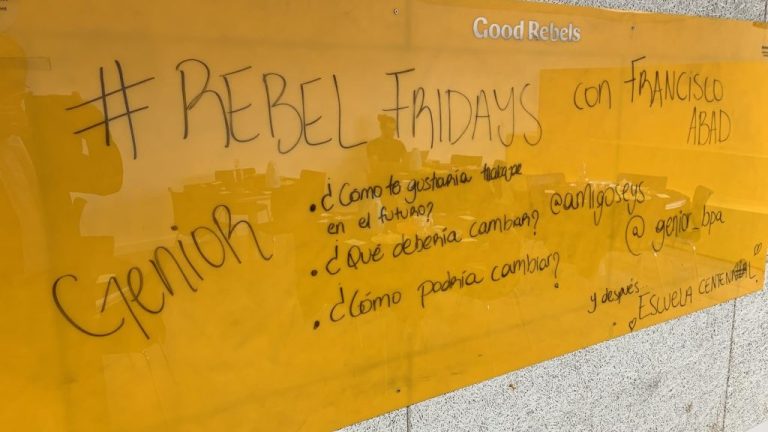 Good Rebels
#REBEL FRIDAYS con FRANCISCO
ABAD
GENIOR
• ¿Cómo te gustaría trabajar
en el futuro?
• ¿Qué debería cambiar?
• ¿Cómo podría cambiar?
@amigoseys
@genior_bpa
y después...
ESCUELA